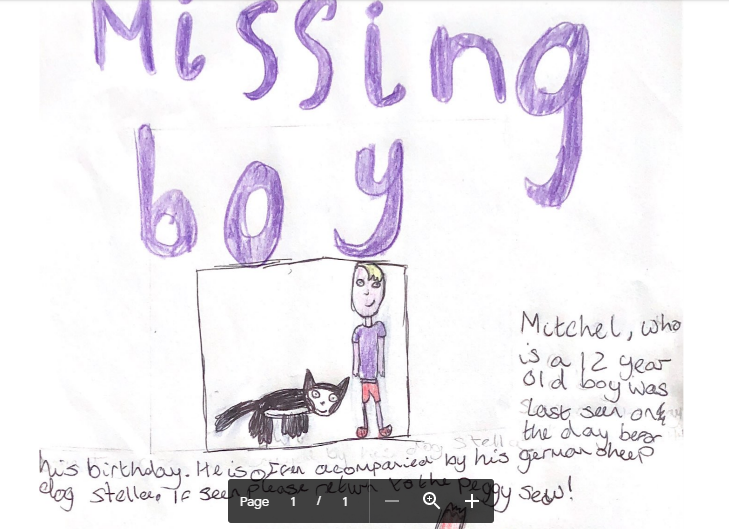 Missing
boy
Mitchel, who
is a 12 year
old boy was
last seen on
the day befor
his birthday. He is ofen acompanied by his german sheep
dog Stella. If seen please return to the Peggy Sew!
Page 1 / 1